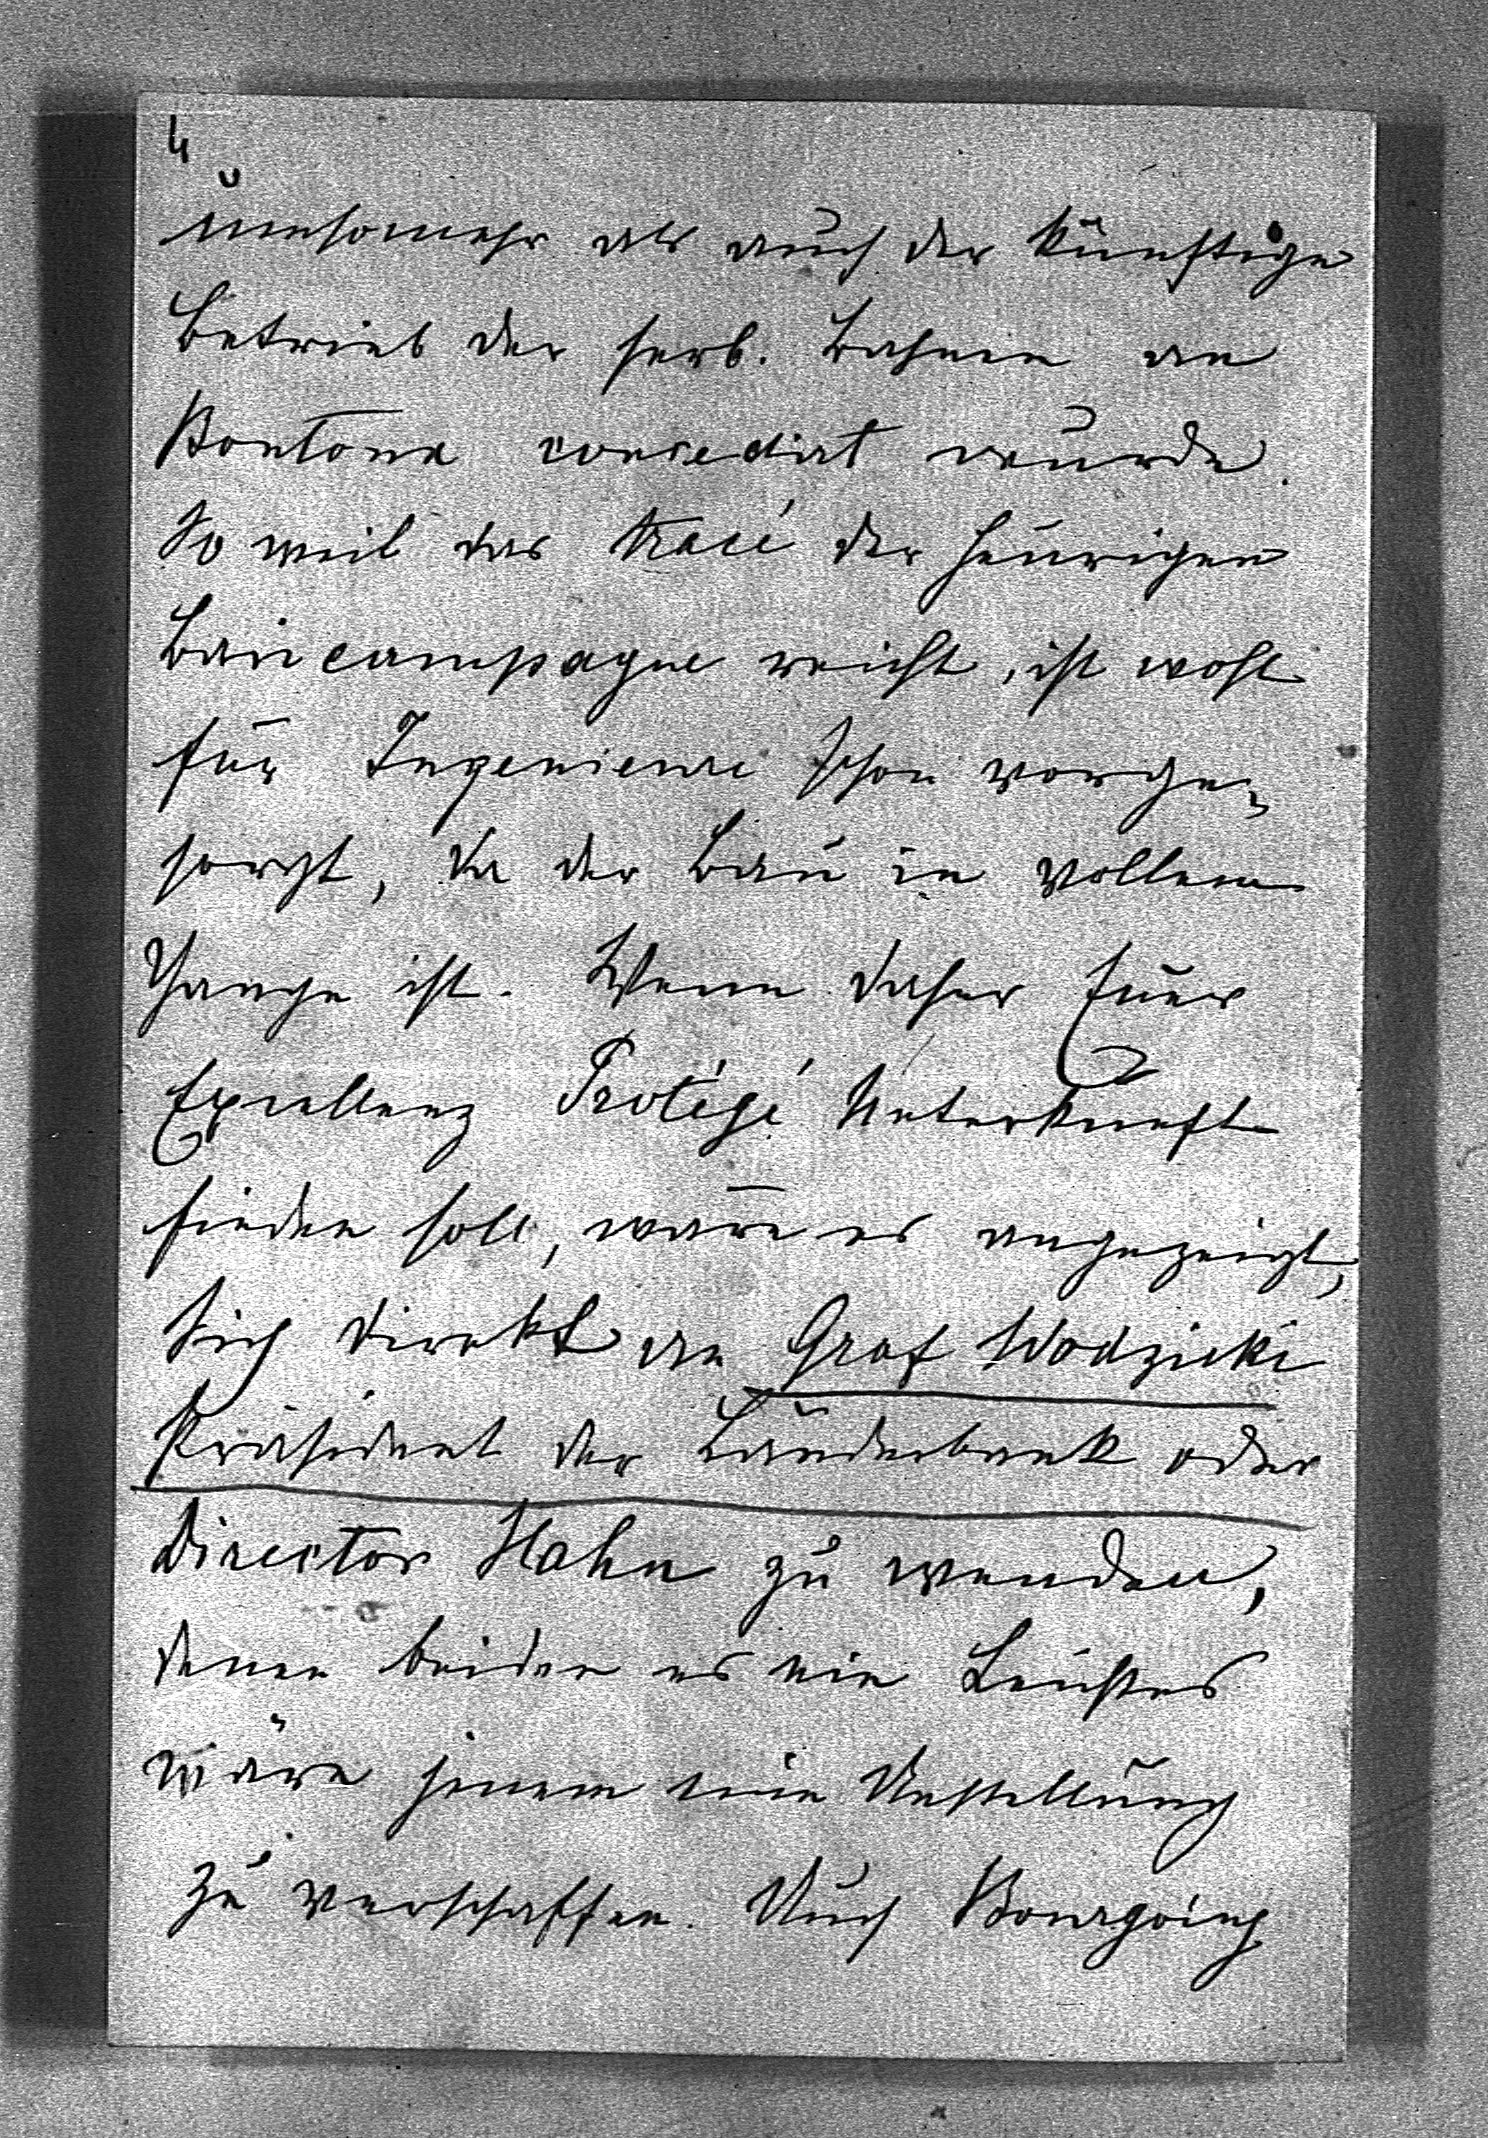 4
umsomehr als auch der künftige
Betrieb der serb. Bahnen an
Bontoux concedirt wurde.
So weit das Tracé der heurigen
Baucampagne reicht, ist wohl
für Ingenieure schon vorge-
sorgt, da der Bau in vollem
Gange ist. Wenn daher Euer
Excellenz Protégé Unterkunft
finden soll, wäre es angezeigt,
Sich direkt an Graf Wodzicki
Präsident der Länderbank oder
Director Hahn zu wenden,
denen beiden es ein Leichtes
wäre jenem eine Anstellung
zu verschaffen. Auch Bourgoing